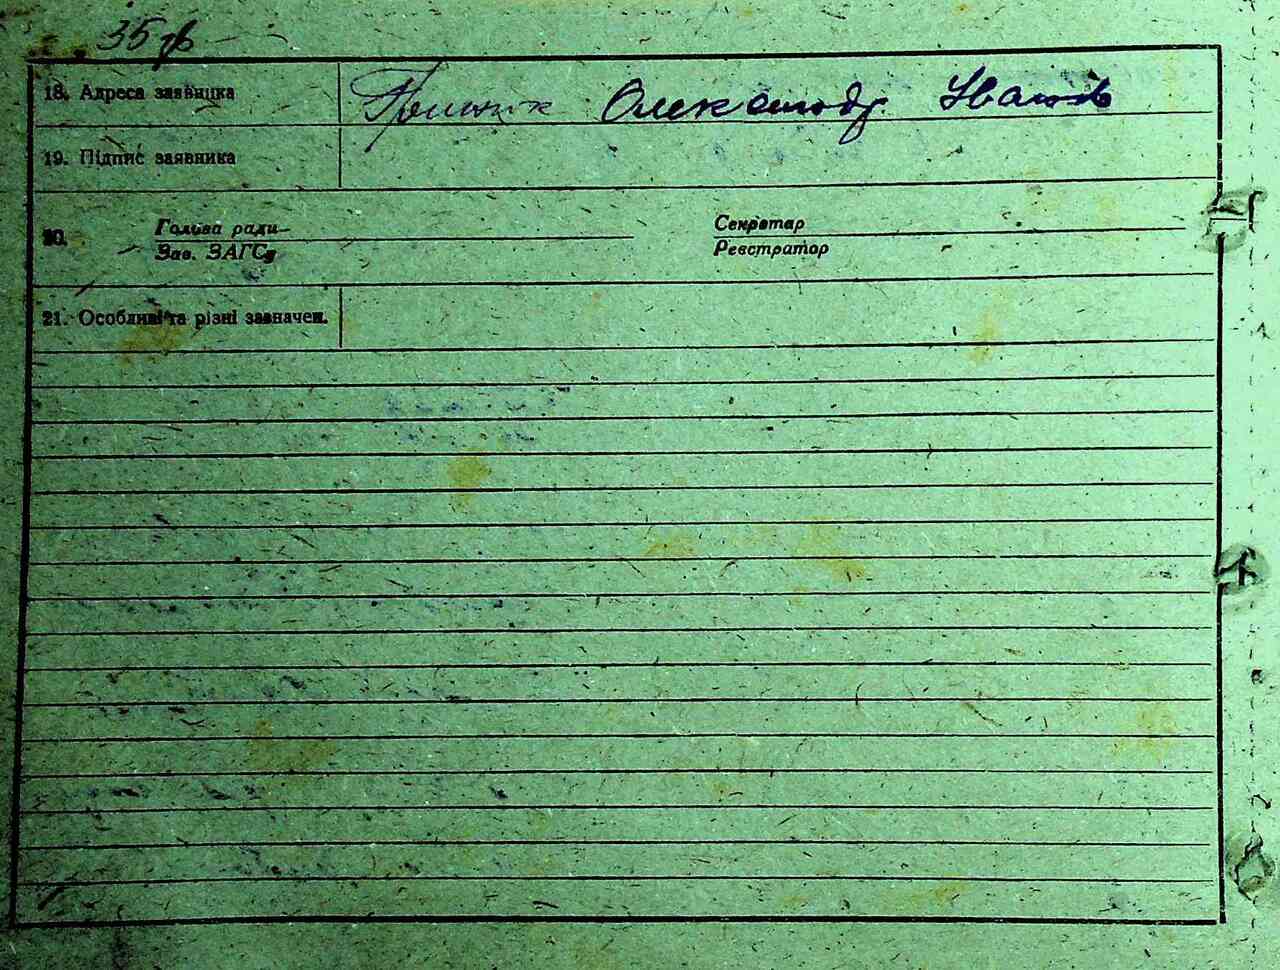 35 зв
18. Адреса заявника Олександр Іванов
19. Підпис заявника
20. Голова ради Секретар
Зав. ЗАГСу Реєстратор
21. Особливі та різні зазначен.